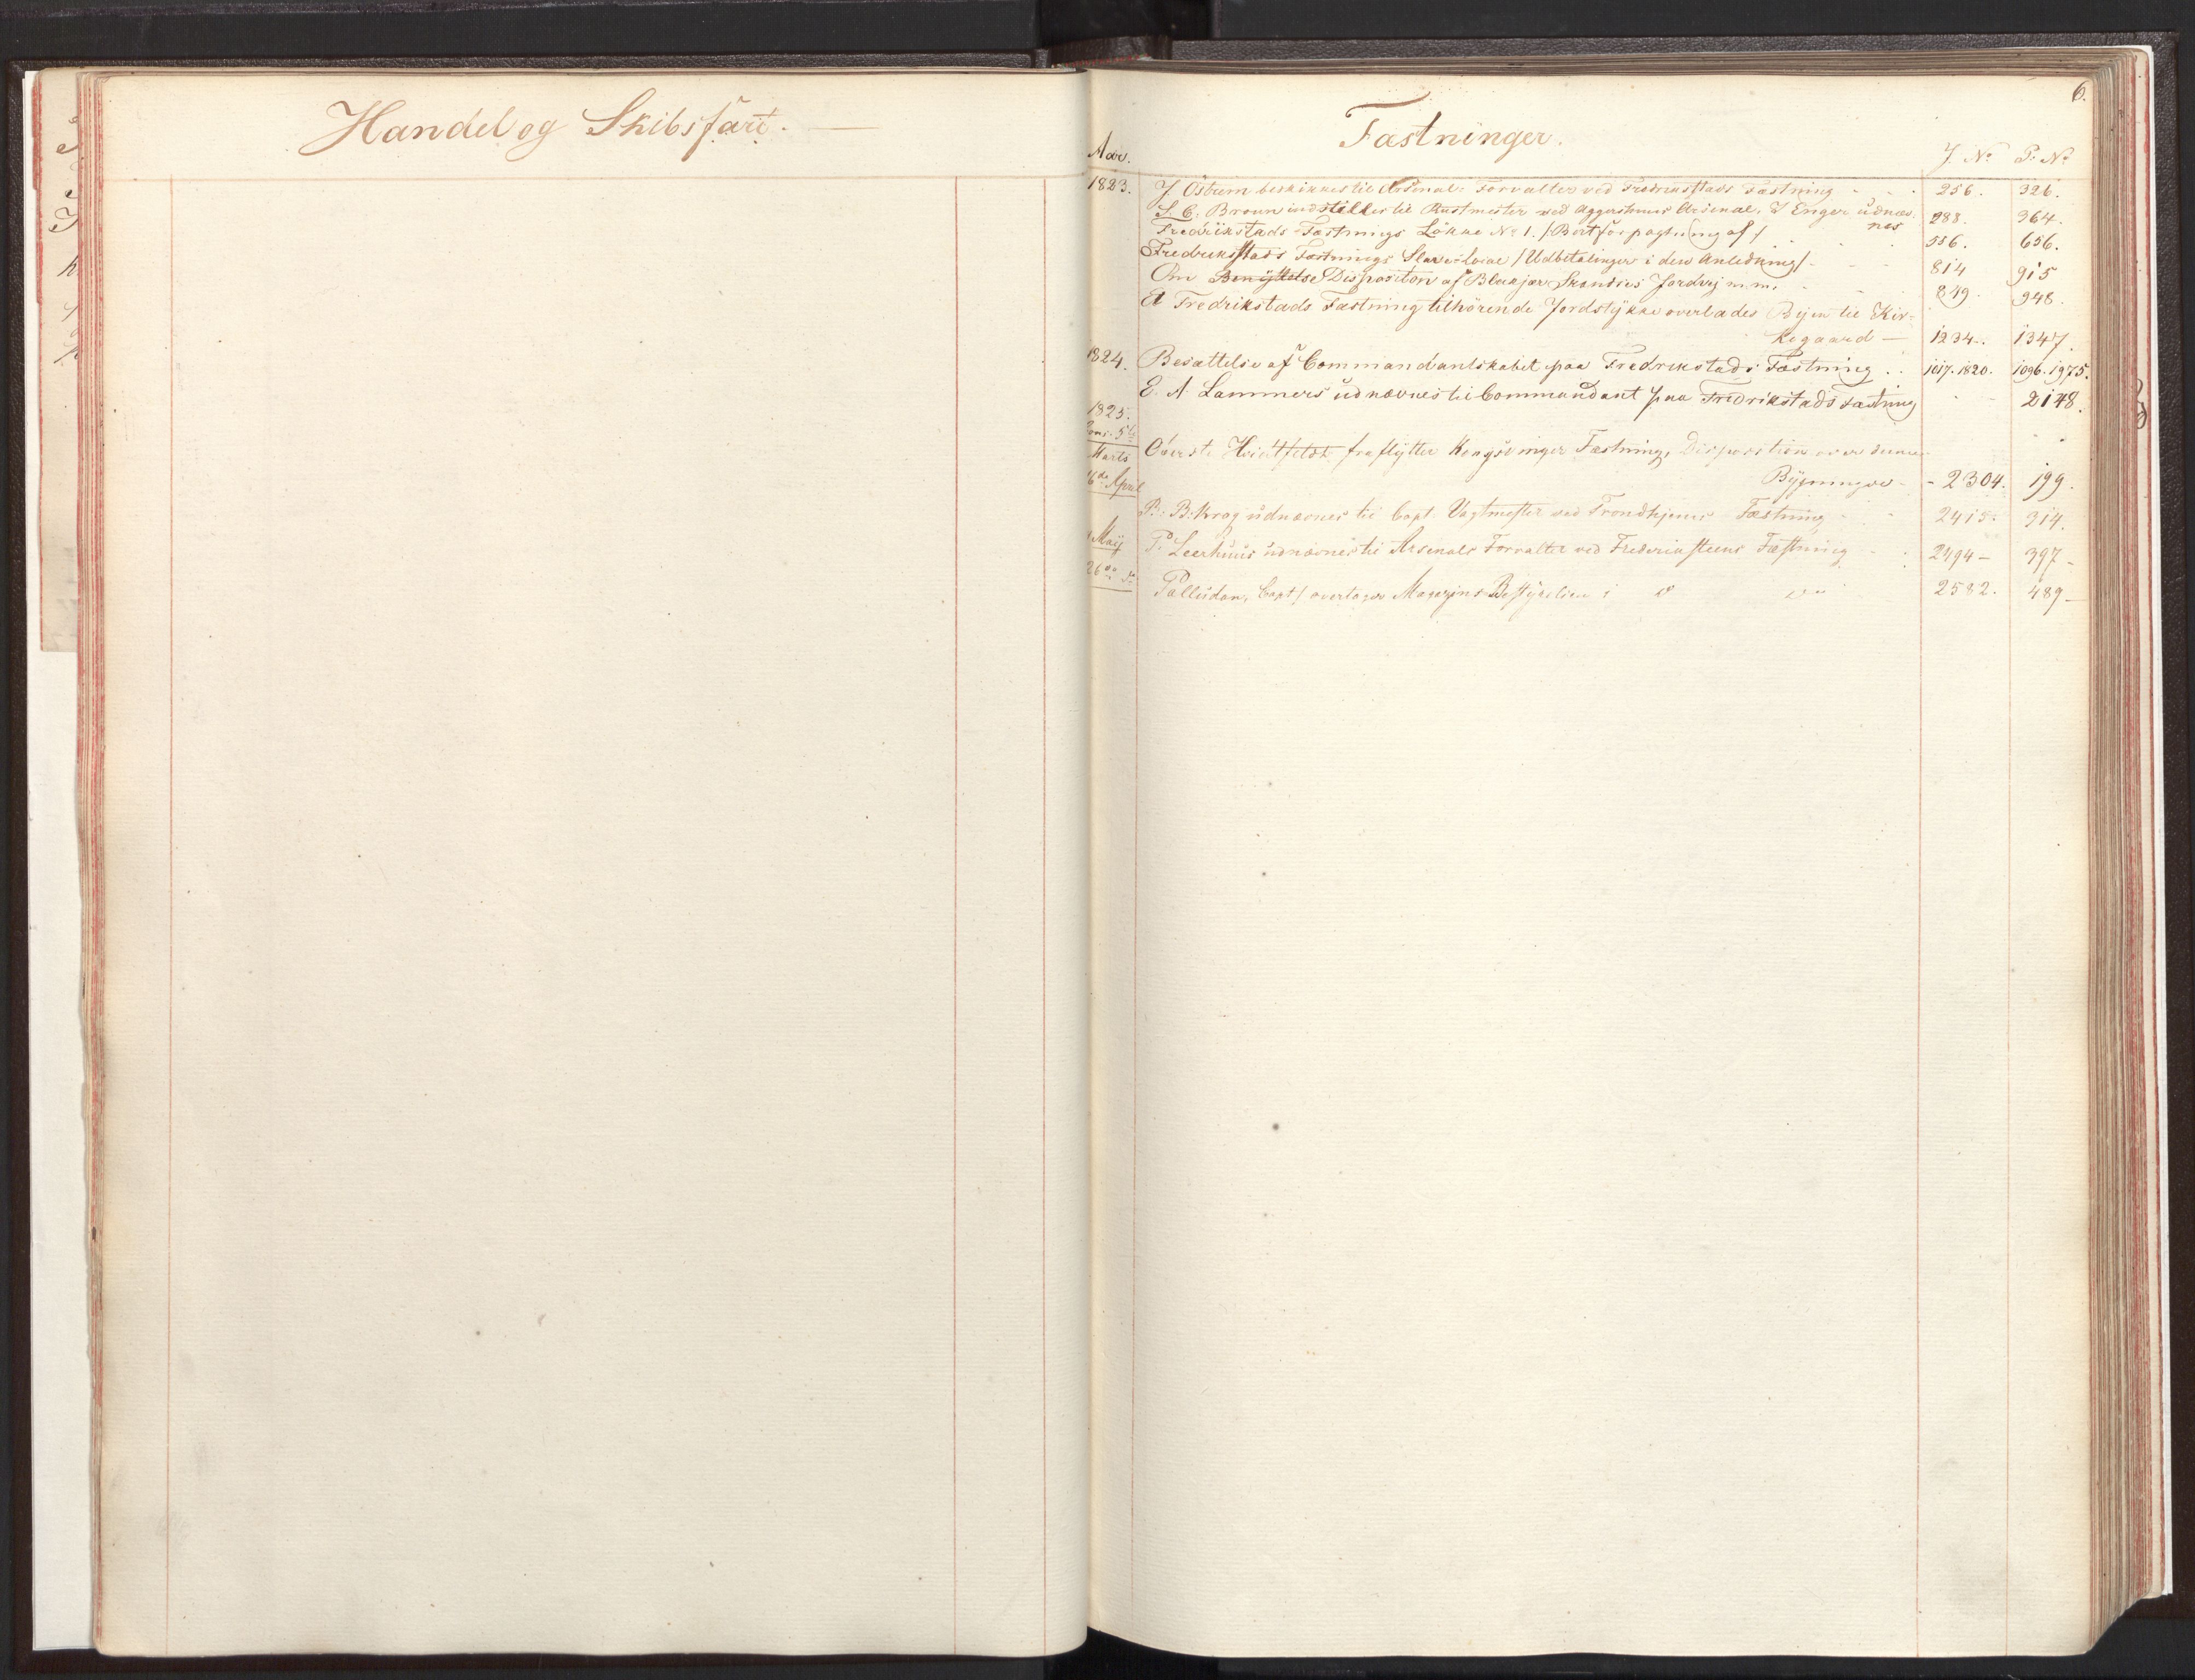 Handel og Skibsfart. —
6.
Fæstninger.
Aar.
J. No P: No
1823. J. Östrem beskikkes til Arsenal: Forvalter ved Fredriksstads Fæstning 256. 326.
S. C. Broun indstilles til Rustmester ved Aggershuus Arsenal, J Enger udnæv 288. 364.
nes
Fredrikstads Fæstnings Lökke No 1. /Bortforpagtning af/ 556. 656.
Fredriksstads Fæstnings /Udbetalinger i den Anledning/ 814 915
Om Benyttelse Disposition af Blakjær Skandses Jordvej m.m. 849. 948.
Et Fredrikstads Fæstning tilhörende Jordstykke overlades Byen til Kir-
kegaard — 1234. 1347.
1824. Besættelse af Commandantskabet paa Fredrikstads Fæstning 1017. 1820. 1096. 1975.
E. A. Lammers udnævnes til Commandant paa Fredrikstads Fæstning 2148.
1825.
Marts Överste Hvidtfeldt fraflytter Kongsvinger Fæstning, Disposition over denne
Bygninger - 2304. 199.
6de April
P: B. Krag udnævnes til Capt. Vagtmester ved Trondhjems Fæstning 2415. 314.
Maÿ P. Leerhuus udnævnes til Arsenals Forvalter ved Frederiksteens Fæstning 2494 — 397 -
26de
Palludan, Capt/ overtager Magazins Bestyrelsen i 2582. 489 -